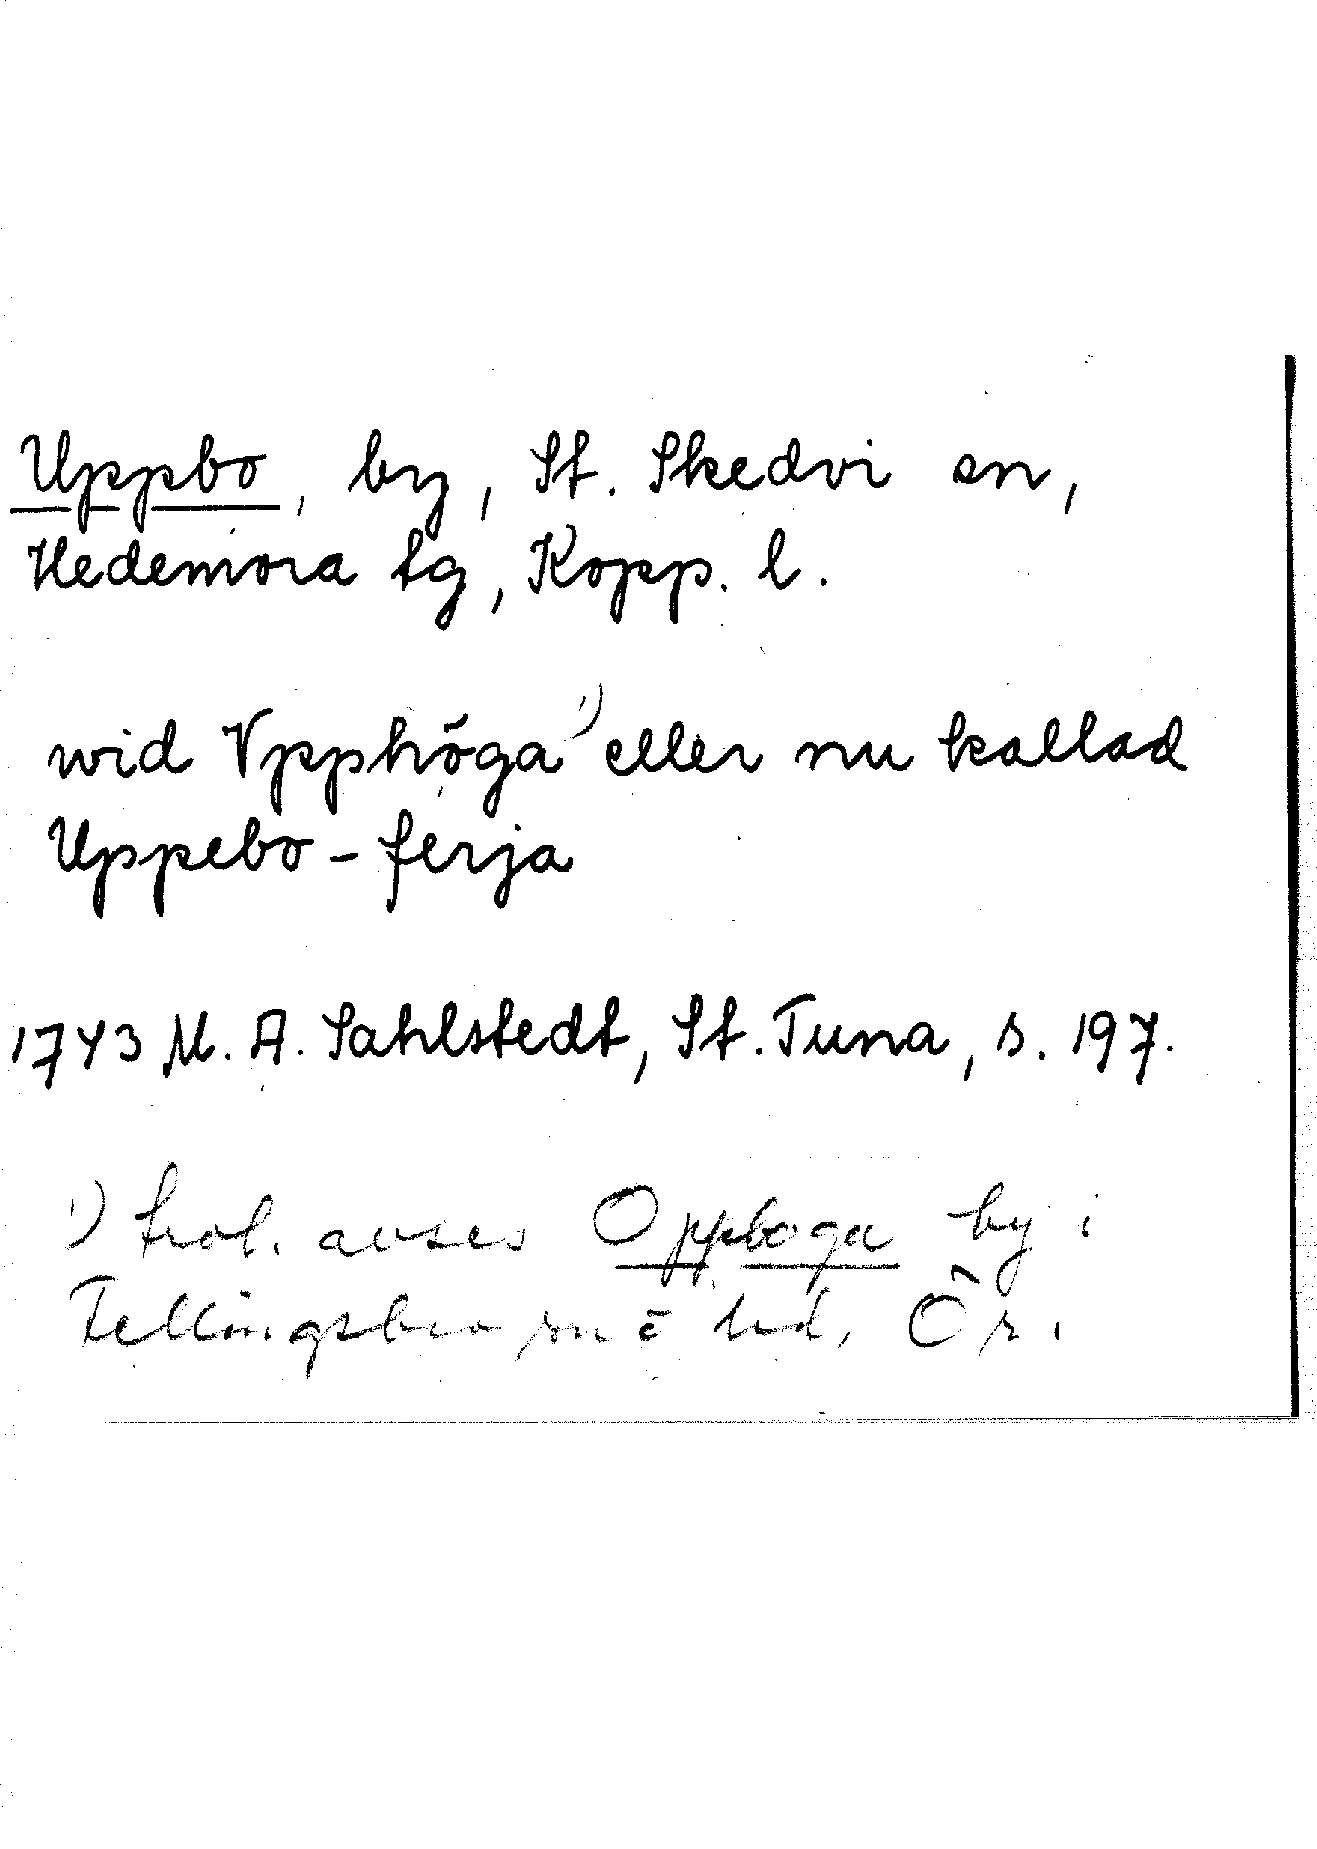 Uppbo, by, St. Skedvi sn,
Hedemora tg, Kopp. l.
wid Vpphöga ¹) eller nu kallad
Uppebo-ferja
1743 M. A. Sahlstedt, St. Tuna, s. 197.
¹) trol. avses Oppboga by i
Fellingsbro sn o hd, Ör.